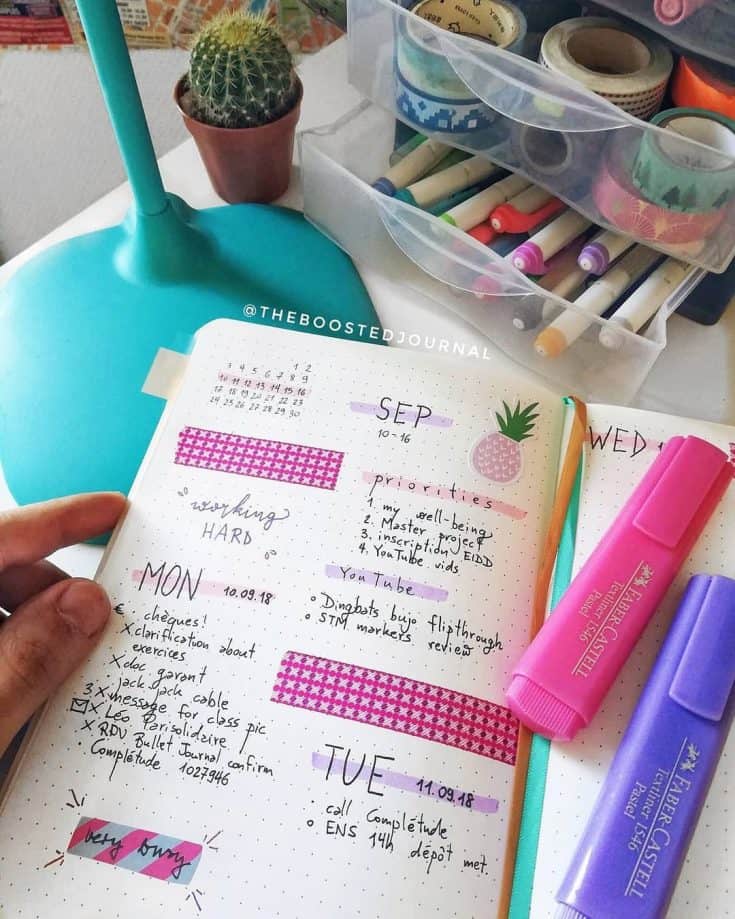 @THEBOOSTEDJOURNAL
1 2
3 4 5 6 7 8 9
10 11 12 13 14 15 16
17 18 19 20 21 22 23
24 25 26 27 28 29 30
SEP
10-16
"working
HARD"
priorities
1. my well-being
2. Master project
3. inscription EIDD
4. YouTube vids
YouTube
Dingbats bujo flipthrough
STM markers review
MON 10.09.18
€ . chèques!
X clarification about
exercices
X doc garant
jack jack cable
3. X message for class pic
X Léo Parisolidaire
X RDV Bullet Journal confirm
· Complétude 1027946
very busy
TUE 11.09.18
· call Complétude
ENS 14h dépôt met.
WED 1
FABER-CASTELL
Textliner 1546
Pastel
FABER-CASTELL
Textliner 1546
Pastel